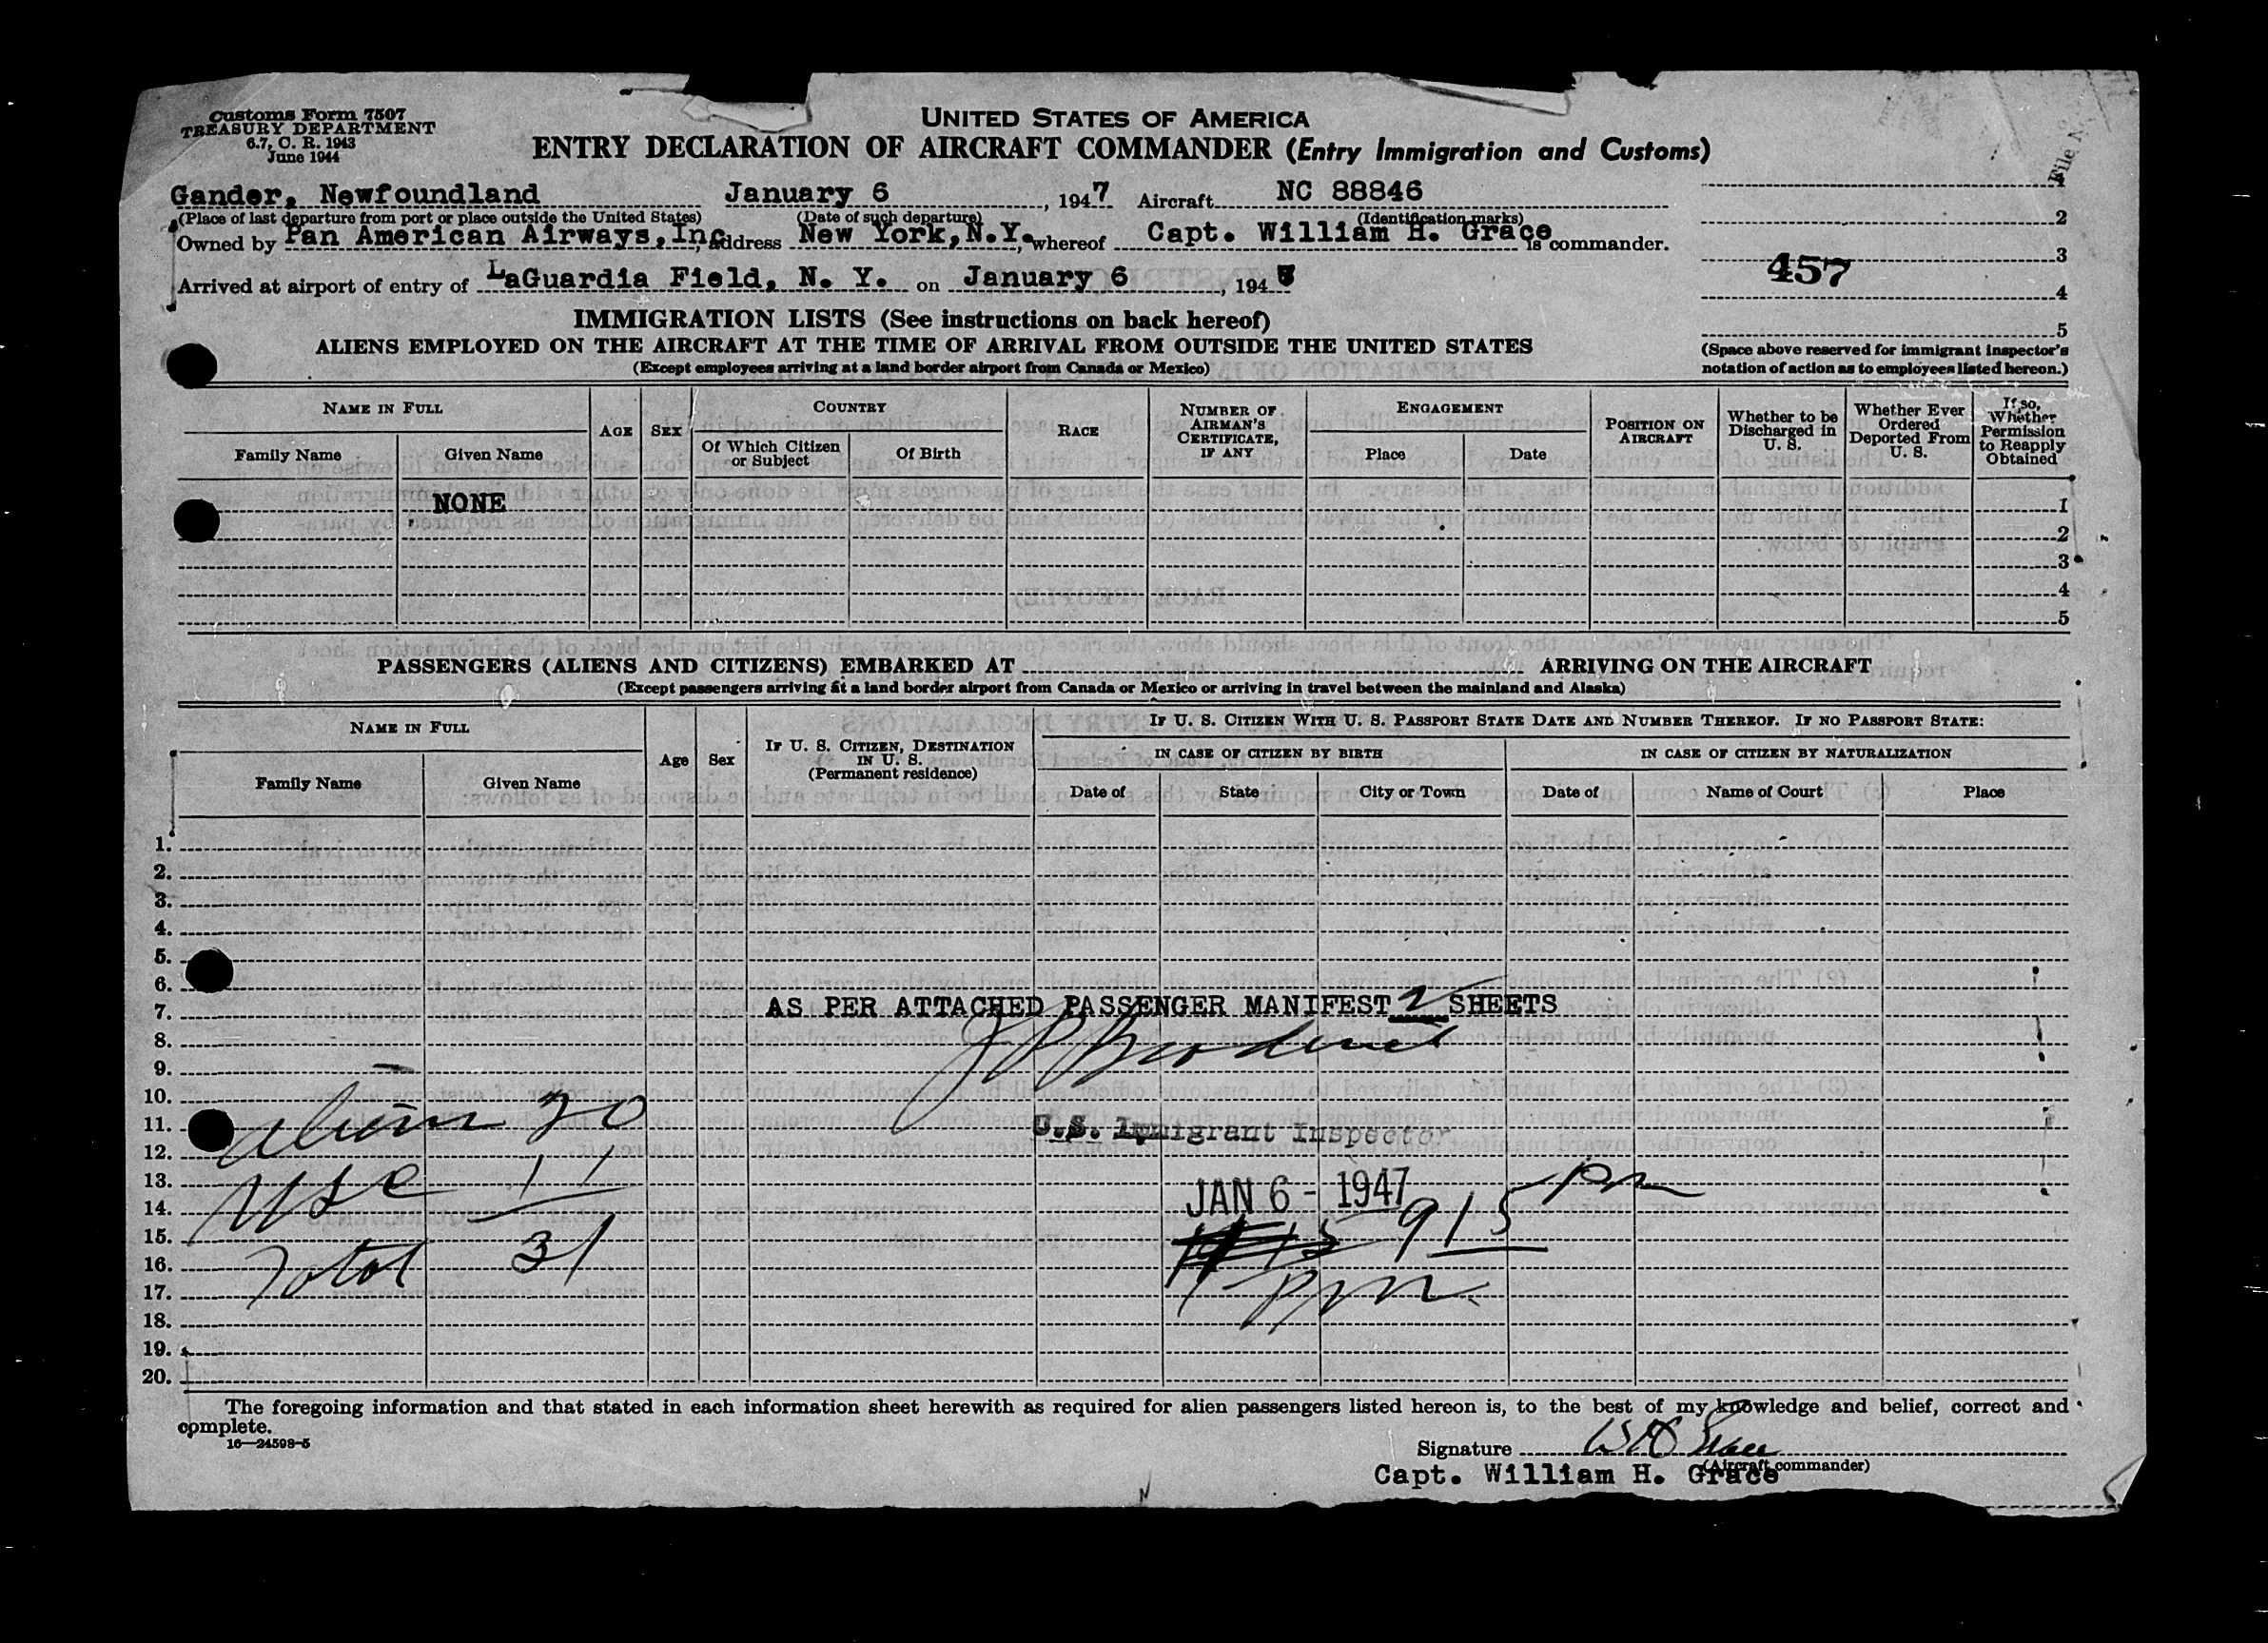 Customs Form 7507
TREASURY DEPARTMENT
6.7, C. R. 1943
June 1944
UNITED STATES OF AMERICA
ENTRY DECLARATION OF AIRCRAFT COMMANDER (Entry Immigration and Customs)
File N
Gander, Newfoundland January 6, 1947 Aircraft NC 88846
(Place of last departure from port or place outside the United States) (Date of such departure) (Identification marks)
2
Owned by Pan American Airways, Inc address New York, N.Y. whereof Capt. William H. Grace is commander.
3
457
Arrived at airport of entry of LaGuardia Field, N. Y. on January 6, 194
4
IMMIGRATION LISTS (See instructions on back hereof)
5
ALIENS EMPLOYED ON THE AIRCRAFT AT THE TIME OF ARRIVAL FROM OUTSIDE THE UNITED STATES
(Except employees arriving at a land border airport from Canada or Mexico)
(Space above reserved for immigrant inspector's
notation of action as to employees listed hereon.)
NAME IN FULL
Family Name
Given Name
AGE
SEX
COUNTRY
Of Which Citizen
or Subject
Of Birth
RACE
NUMBER OF
AIRMAN'S
CERTIFICATE,
IF ANY
ENGAGEMENT
Place
Date
POSITION ON
AIRCRAFT
Whether to be
Discharged in
U. S.
Whether Ever
Ordered
Deported From
U. S.
If so,
Whether
Permission
to Reapply
Obtained
NONE
1
2
3
4
5
PASSENGERS (ALIENS AND CITIZENS) EMBARKED AT ARRIVING ON THE AIRCRAFT
(Except passengers arriving at a land border airport from Canada or Mexico or arriving in travel between the mainland and Alaska)
NAME IN FULL
Family Name
Given Name
Age
Sex
IF U. S. CITIZEN, DESTINATION
IN U. S.
(Permanent residence)
IF U. S. CITIZEN WITH U. S. PASSPORT STATE DATE AND NUMBER THEREOF. IF NO PASSPORT STATE:
IN CASE OF CITIZEN BY BIRTH
Date of
State
City or Town
IN CASE OF CITIZEN BY NATURALIZATION
Date of
Name of Court
Place
1.
2.
3.
4.
5.
6.
7. AS PER ATTACHED PASSENGER MANIFEST 2 SHEETS
8.
9.
10.
11. Alien 20
U.S. Immigrant Inspector
12.
13.
14. USC 11
JAN 6 - 1947 915 pm
15.
16. Total 31
17. pm
18.
19.
20.
The foregoing information and that stated in each information sheet herewith as required for alien passengers listed hereon is, to the best of my knowledge and belief, correct and
complete.
16—24598-5
Signature WH Grace
(Aircraft commander)
Capt. William H. Grace